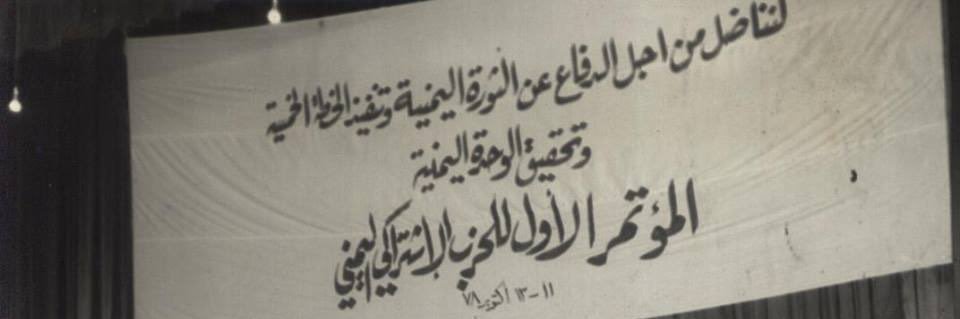 لنناضل من اجل الدفاع عن الثورة اليمنية وتنفيذ الخطة الخمسية
وتحقيق الوحدة اليمنية
المؤتمر الأول للحزب الإشتراكي اليمني
١١-١٣ أكتوبر ٧٨